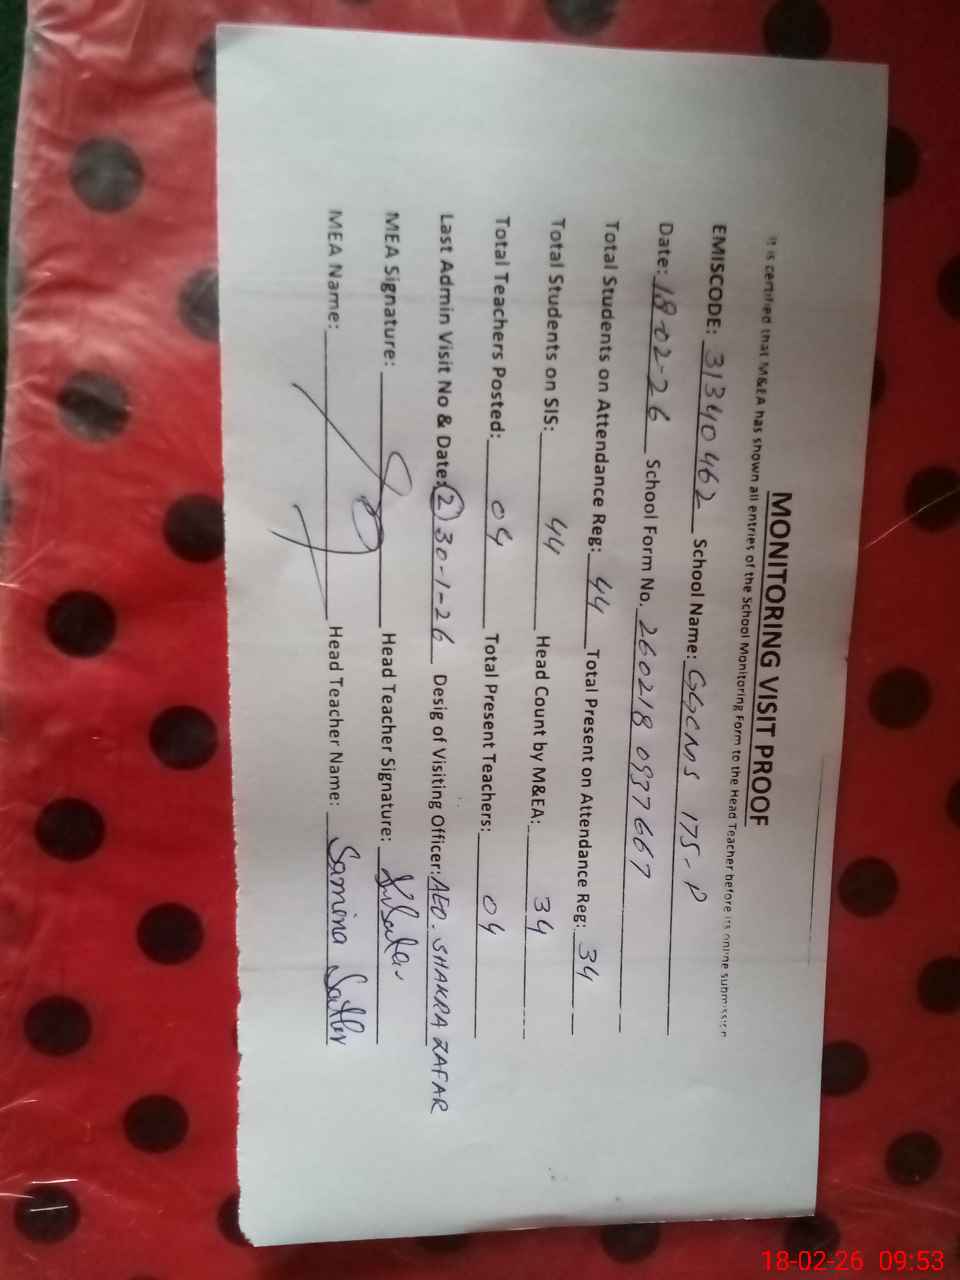 MONITORING VISIT PROOF
It is certified that M&EA has shown all entries of the School Monitoring Form to the Head Teacher before its online submission
EMISCODE: 31340462 School Name: GGCMS 175-P
Date: 18-02-26 School Form No. 260218 0937667
Total Students on Attendance Reg: 44 Total Present on Attendance Reg: 34
Total Students on SIS: 44 Head Count by M&EA: 34
Total Teachers Posted: 04 Total Present Teachers: 04
Last Admin Visit No & Date: (2) 30-1-26 Desig of Visiting Officer: AEO. SHAKRA ZAFAR
MEA Signature: Head Teacher Signature:
MEA Name: Head Teacher Name: Samina Sattar
18-02-26 09:53